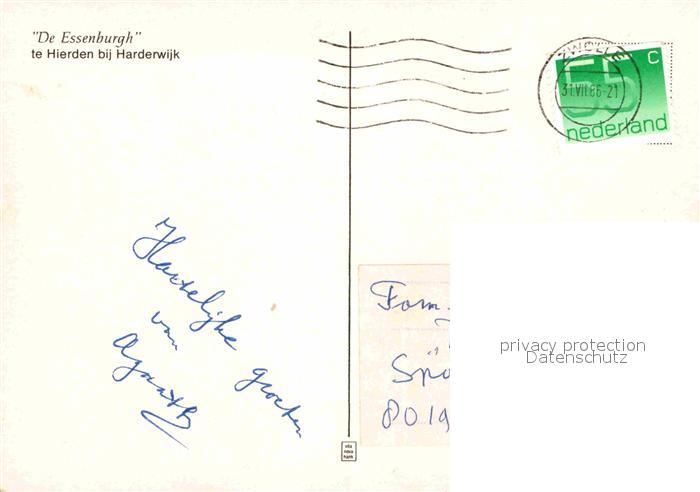 "De Essenburgh"
te Hierden bij Harderwijk
ZWOLLE
31.VII.86-21
55 c
nederland
Hartelijke groeten
van
Fam.
privacy protection
Datenschutz
Spö
8019
vita
nova